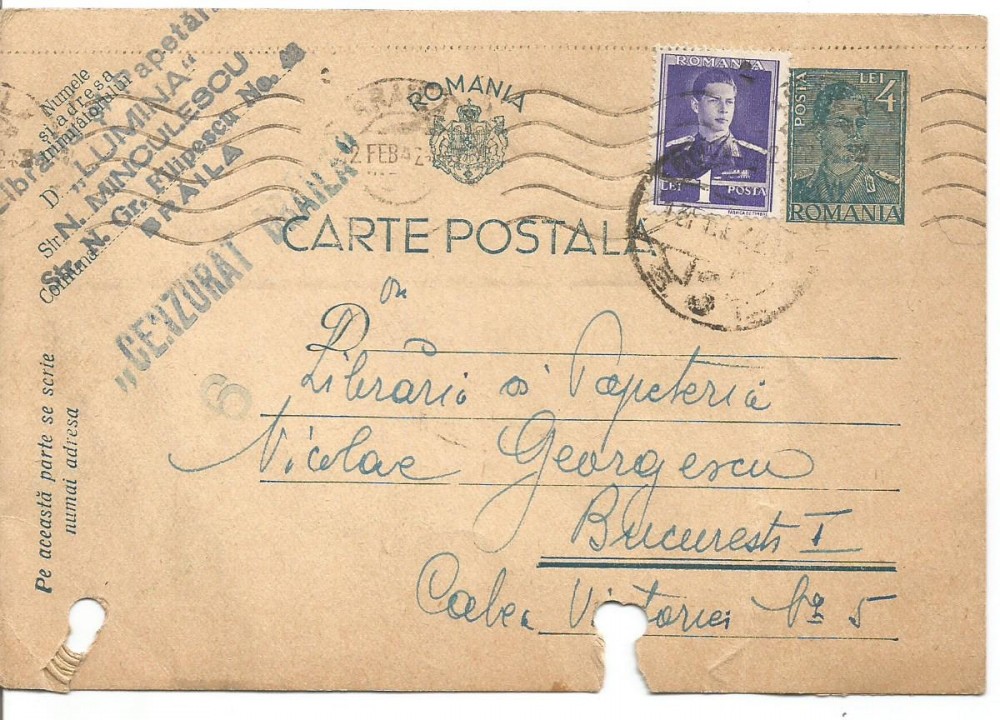 Librăria și Papetăria
„LUMINA“
N. MINCULESCU
Str. N. Gr. Filipescu No. 48
BRAILA
Numele
și adresa
trimițătorului
D
Str.
Comuna
ROMANIA
2 FEB 42
CARTE POSTALA
„CENZURAT BRAILA“
6
ROMANIA
LEI 1 POSTA
POSTA
LEI 4
ROMANIA
D
Librăria și Papeteria
Nicolae Georgescu
București I
Calea Victoriei No 5
Pe această parte se scrie
numai adresa